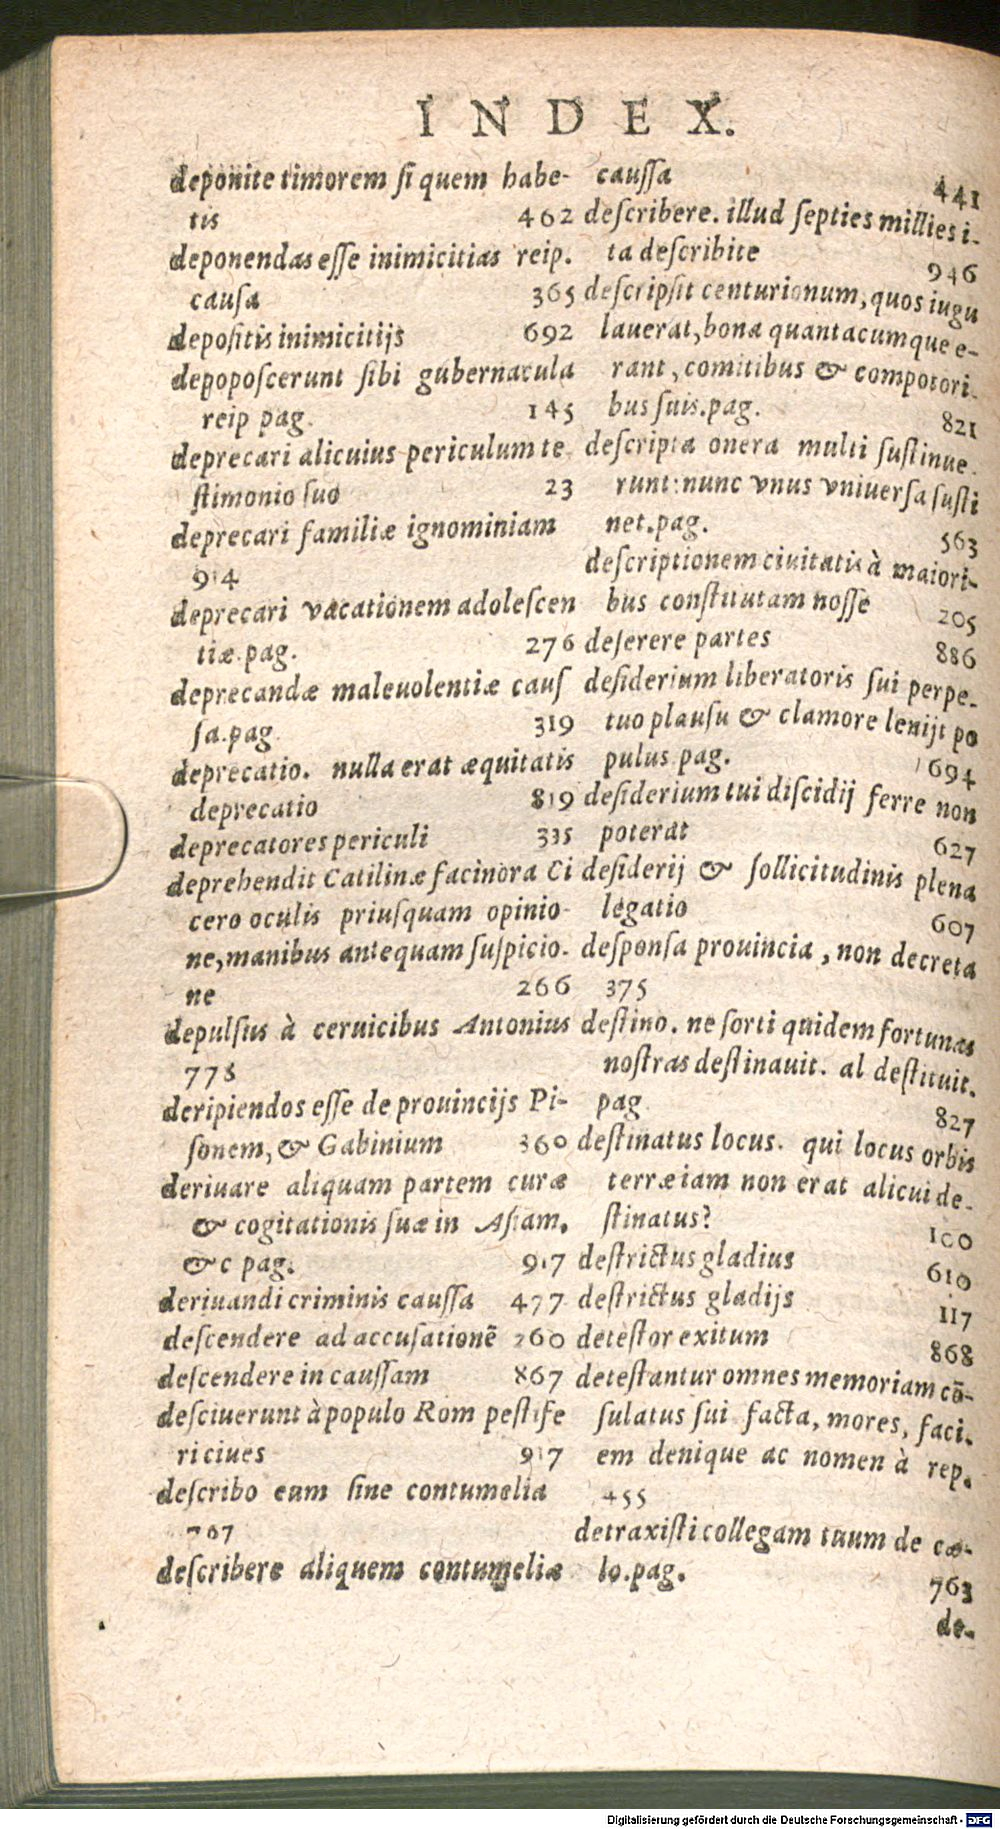 INDEX.
deponite timorem ſi quem habe-
tis 462
deponendas eſſe inimicitias reip.
cauſa 365
depoſitis inimicitijs 692
depopoſcerunt ſibi gubernacula
reip pag. 145
deprecari alicuius periculum te
ſtimonio ſuo 23
deprecari familiæ ignominiam
914
deprecari vacationem adoleſcen
tiæ.pag. 276
deprecandæ maleuolentiæ cauſ
ſa.pag. 319
deprecatio. nulla erat æquitatis
deprecatio 819
deprecatores periculi 335
deprehendit Catilinæ facinora Ci
cero oculis priuſquam opinio-
ne, manibus antequam ſuſpicio-
ne 266
depulſus à ceruicibus Antonius
778
deripiendos eſſe de prouincijs Pi-
ſonem, & Gabinium 360
deriuare aliquam partem curæ
& cogitationis ſuæ in Aſiam,
&c pag. 917
deriuandi criminis cauſſa 477
deſcendere ad accuſationē 260
deſcendere in cauſſam 867
deſciuerunt à populo Rom peſtife
ri ciues 917
deſcribo eum ſine contumelia
767
deſcribere aliquem contumeliæ
cauſſa 441
deſcribere. illud ſepties millies i-
ta deſcribite 946
deſcripſit centurionum, quos iugu
lauerat, bona quantacumque e-
rant, comitibus & compotori-
bus ſuis.pag. 821
deſcripta onera multi ſuſtinue-
runt: nunc vnus vniuerſa ſuſti
net.pag. 563
deſcriptionem ciuitatis à maiori-
bus conſtitutam noſſe 205
deſerere partes 886
deſiderium liberatoris ſui perpe-
tuo plauſu & clamore lenijt po
pulus pag. 694
deſiderium tui diſcidij ferre non
poterat 627
deſiderij & ſollicitudinis plena
legatio 607
deſponſa prouincia, non decreta
375
deſtino. ne ſorti quidem fortunas
noſtras deſtinauit. al deſtituit.
pag 827
deſtinatus locus. qui locus orbis
terræ iam non erat alicui de-
ſtinatus? 100
deſtrictus gladius 610
deſtrictus gladijs 117
deteſtor exitum 868
deteſtantur omnes memoriam cō-
ſulatus ſui facta, mores, faci-
em denique ac nomen à rep.
455
detraxiſti collegam tuum de cæ-
lo.pag. 763
de-
Digitalisierung gefördert durch die Deutsche Forschungsgemeinschaft - DFG